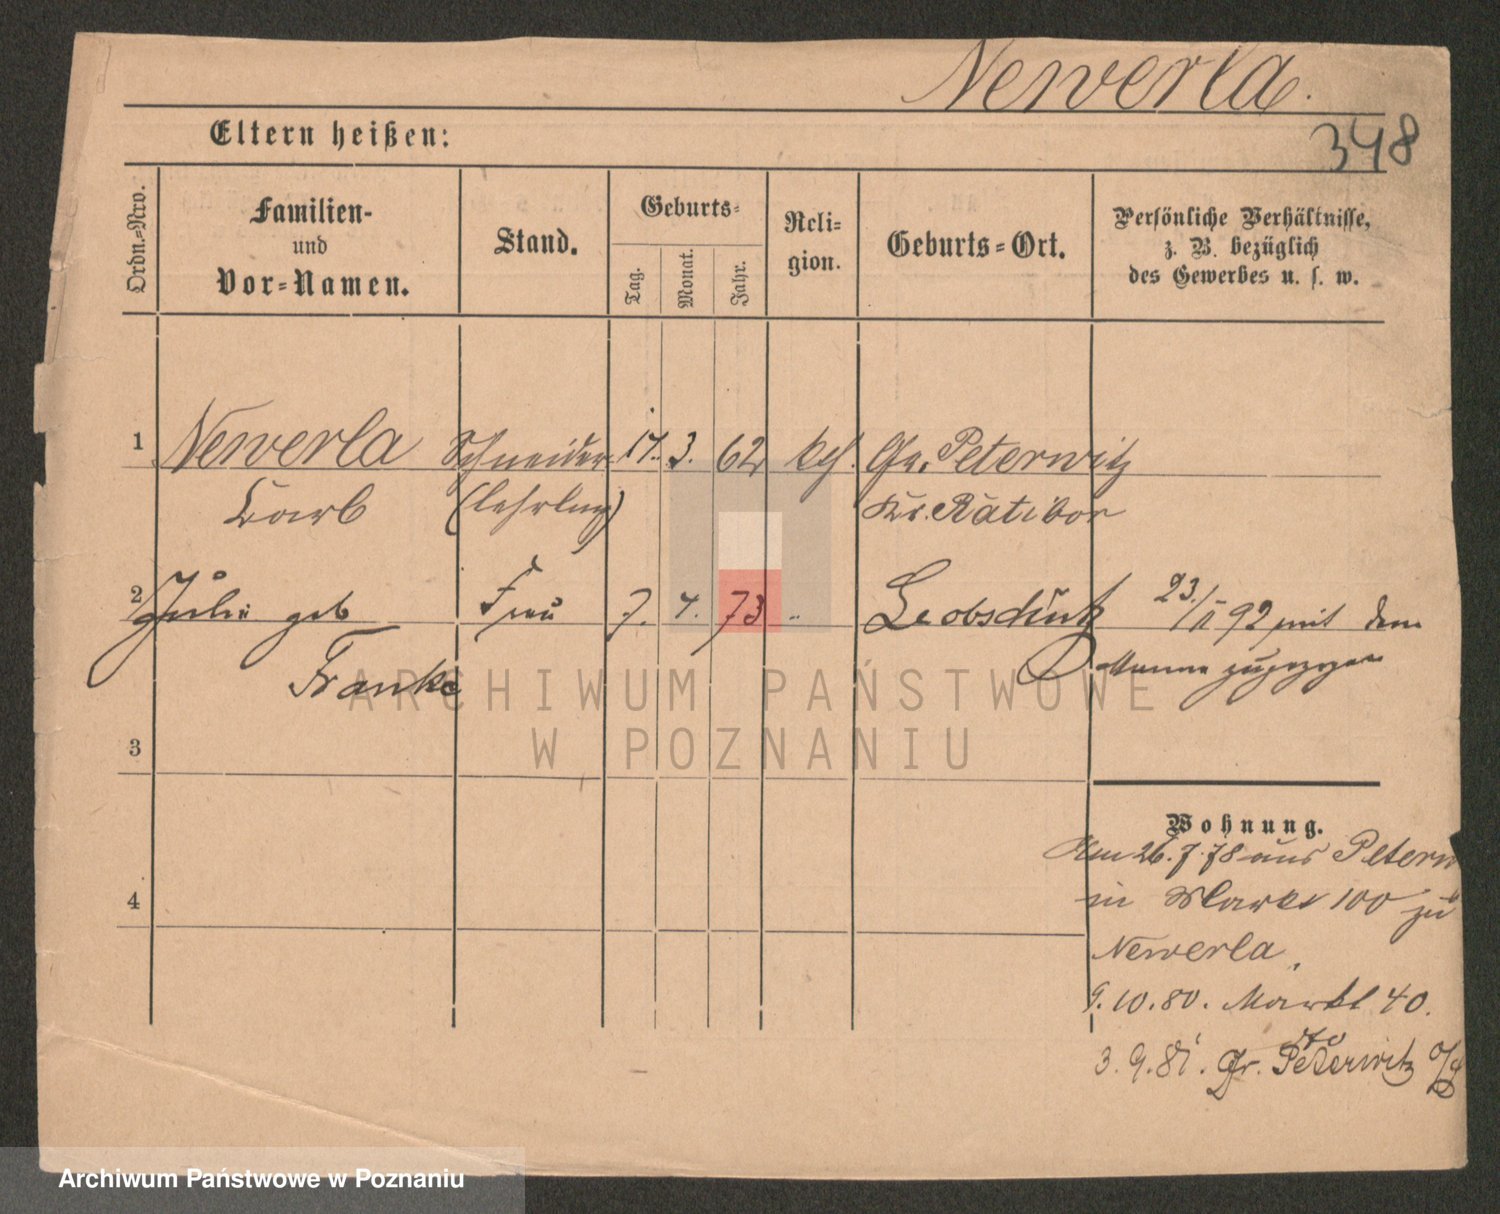 Newerla.
348
Eltern heißen:
Ordn.-Nro.
Familien-
und
Vor-Namen.
Stand.
Geburts-
Tag.
Monat.
Jahr.
Reli-
gion.
Geburts-Ort.
Persönliche Verhältnisse,
z. B. bezüglich
des Gewerbes u. s. w.
1 Newerla Schneider 17. 3. 62 kth. Gr. Peterwitz
Carl (Lehrling) Kr. Ratibor
2 Julie geb Frau 7. 4. 73 " Leobschütz 23./II 92 mit dem
Franke Manne zugezogen
ARCHIWUM PAŃSTWOWE
W POZNANIU
3
4
Wohnung.
Am 26.7.78 aus Peterw
in Markt 100 zu
Newerla.
9.10.80. Markt 40.
3.9.81. Gr. Peterwitz
Archiwum Państwowe w Poznaniu